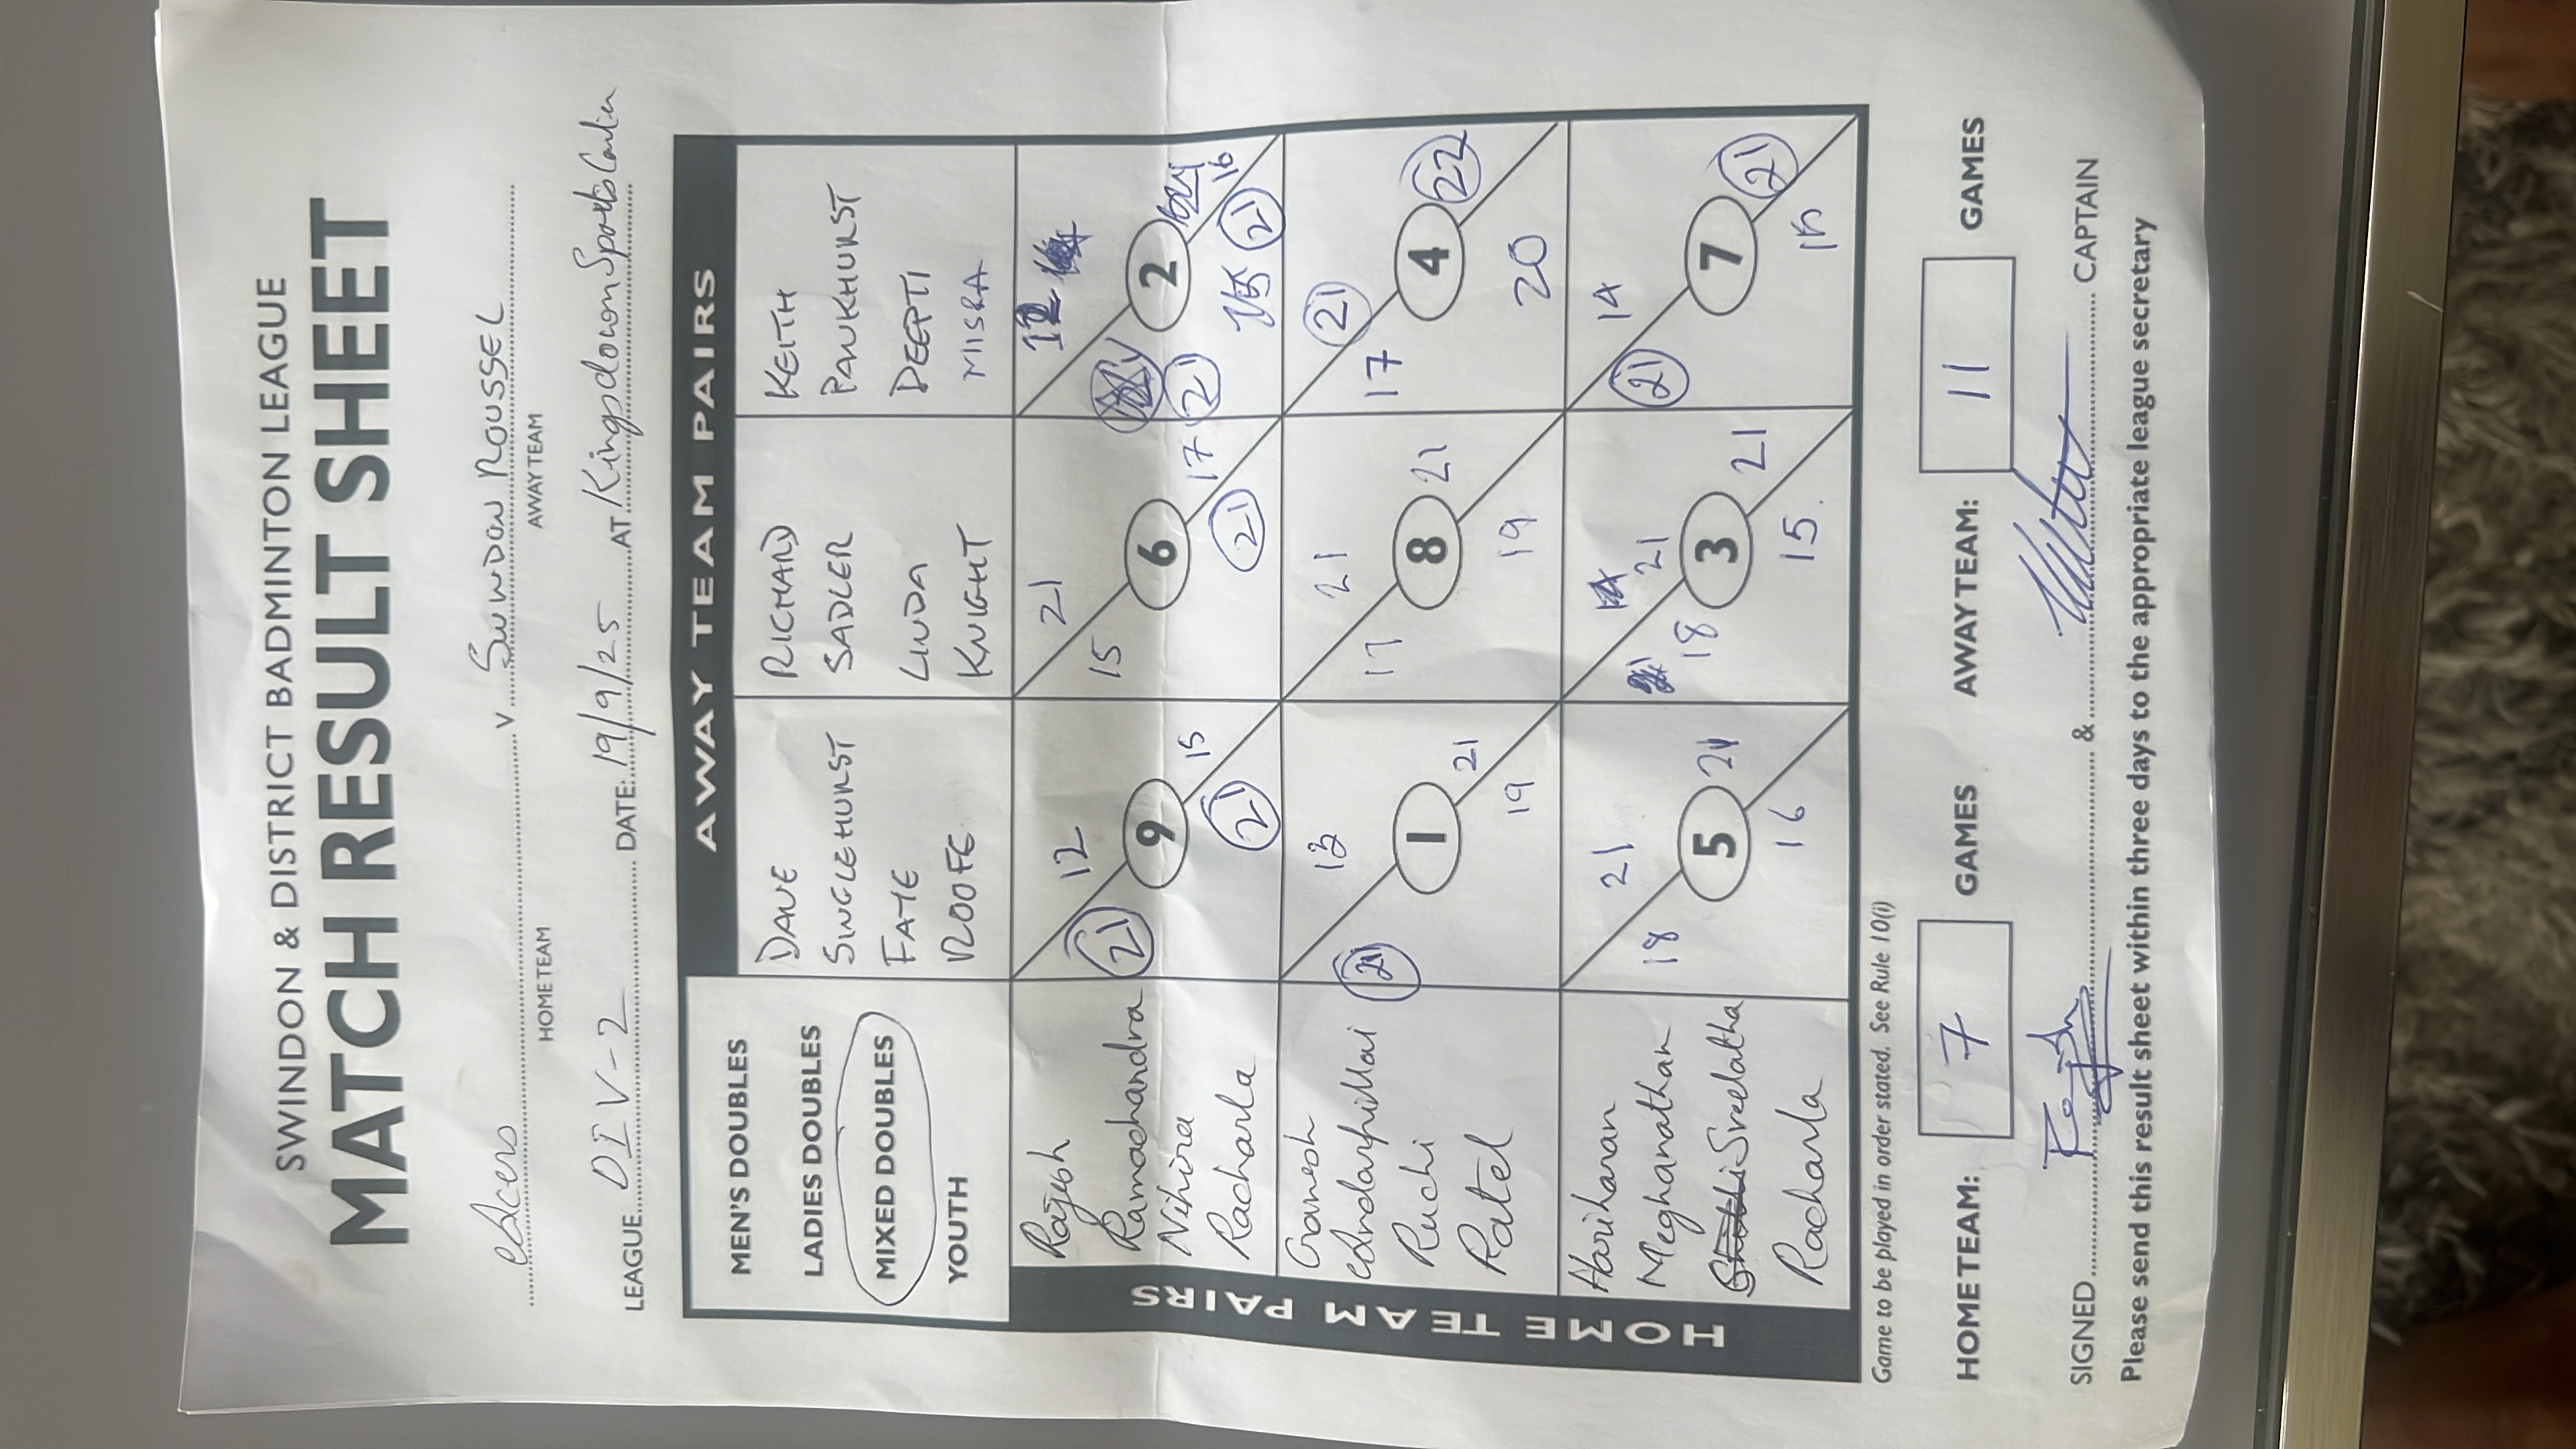 SWINDON & DISTRICT BADMINTON LEAGUE
MATCH RESULT SHEET
Aces v SWINDON ROUSSEL
HOME TEAM AWAY TEAM
LEAGUE DIV-2 DATE: 19/9/25 AT Kingsdown Sports Center
AWAY TEAM PAIRS
MEN'S DOUBLES
LADIES DOUBLES
MIXED DOUBLES
YOUTH
DAVE
SINGLEHURST
FAYE
ROOFE
RICHARD
SADLER
LINDA
KNIGHT
KEITH
PANKHURST
DEEPTI
MISRA
HOME TEAM PAIRS
Rajesh
Ramachandra
Nihira
Racharla
21 12 9 15 21
15 21 6 17 21
12 2 16 21 21
Ganesh
Ruchi
Patel
21 13 1 21 19
17 21 8 21 19
17 21 4 22 20
Hariharan
Meghanathan
Sreelatha
Racharla
18 21 5 21 16
18 21 3 21 15
21 14 7 21 15
Game to be played in order stated. See Rule 10(i)
HOME TEAM: 7 GAMES AWAY TEAM: 11 GAMES
SIGNED & CAPTAIN
Please send this result sheet within three days to the appropriate league secretary